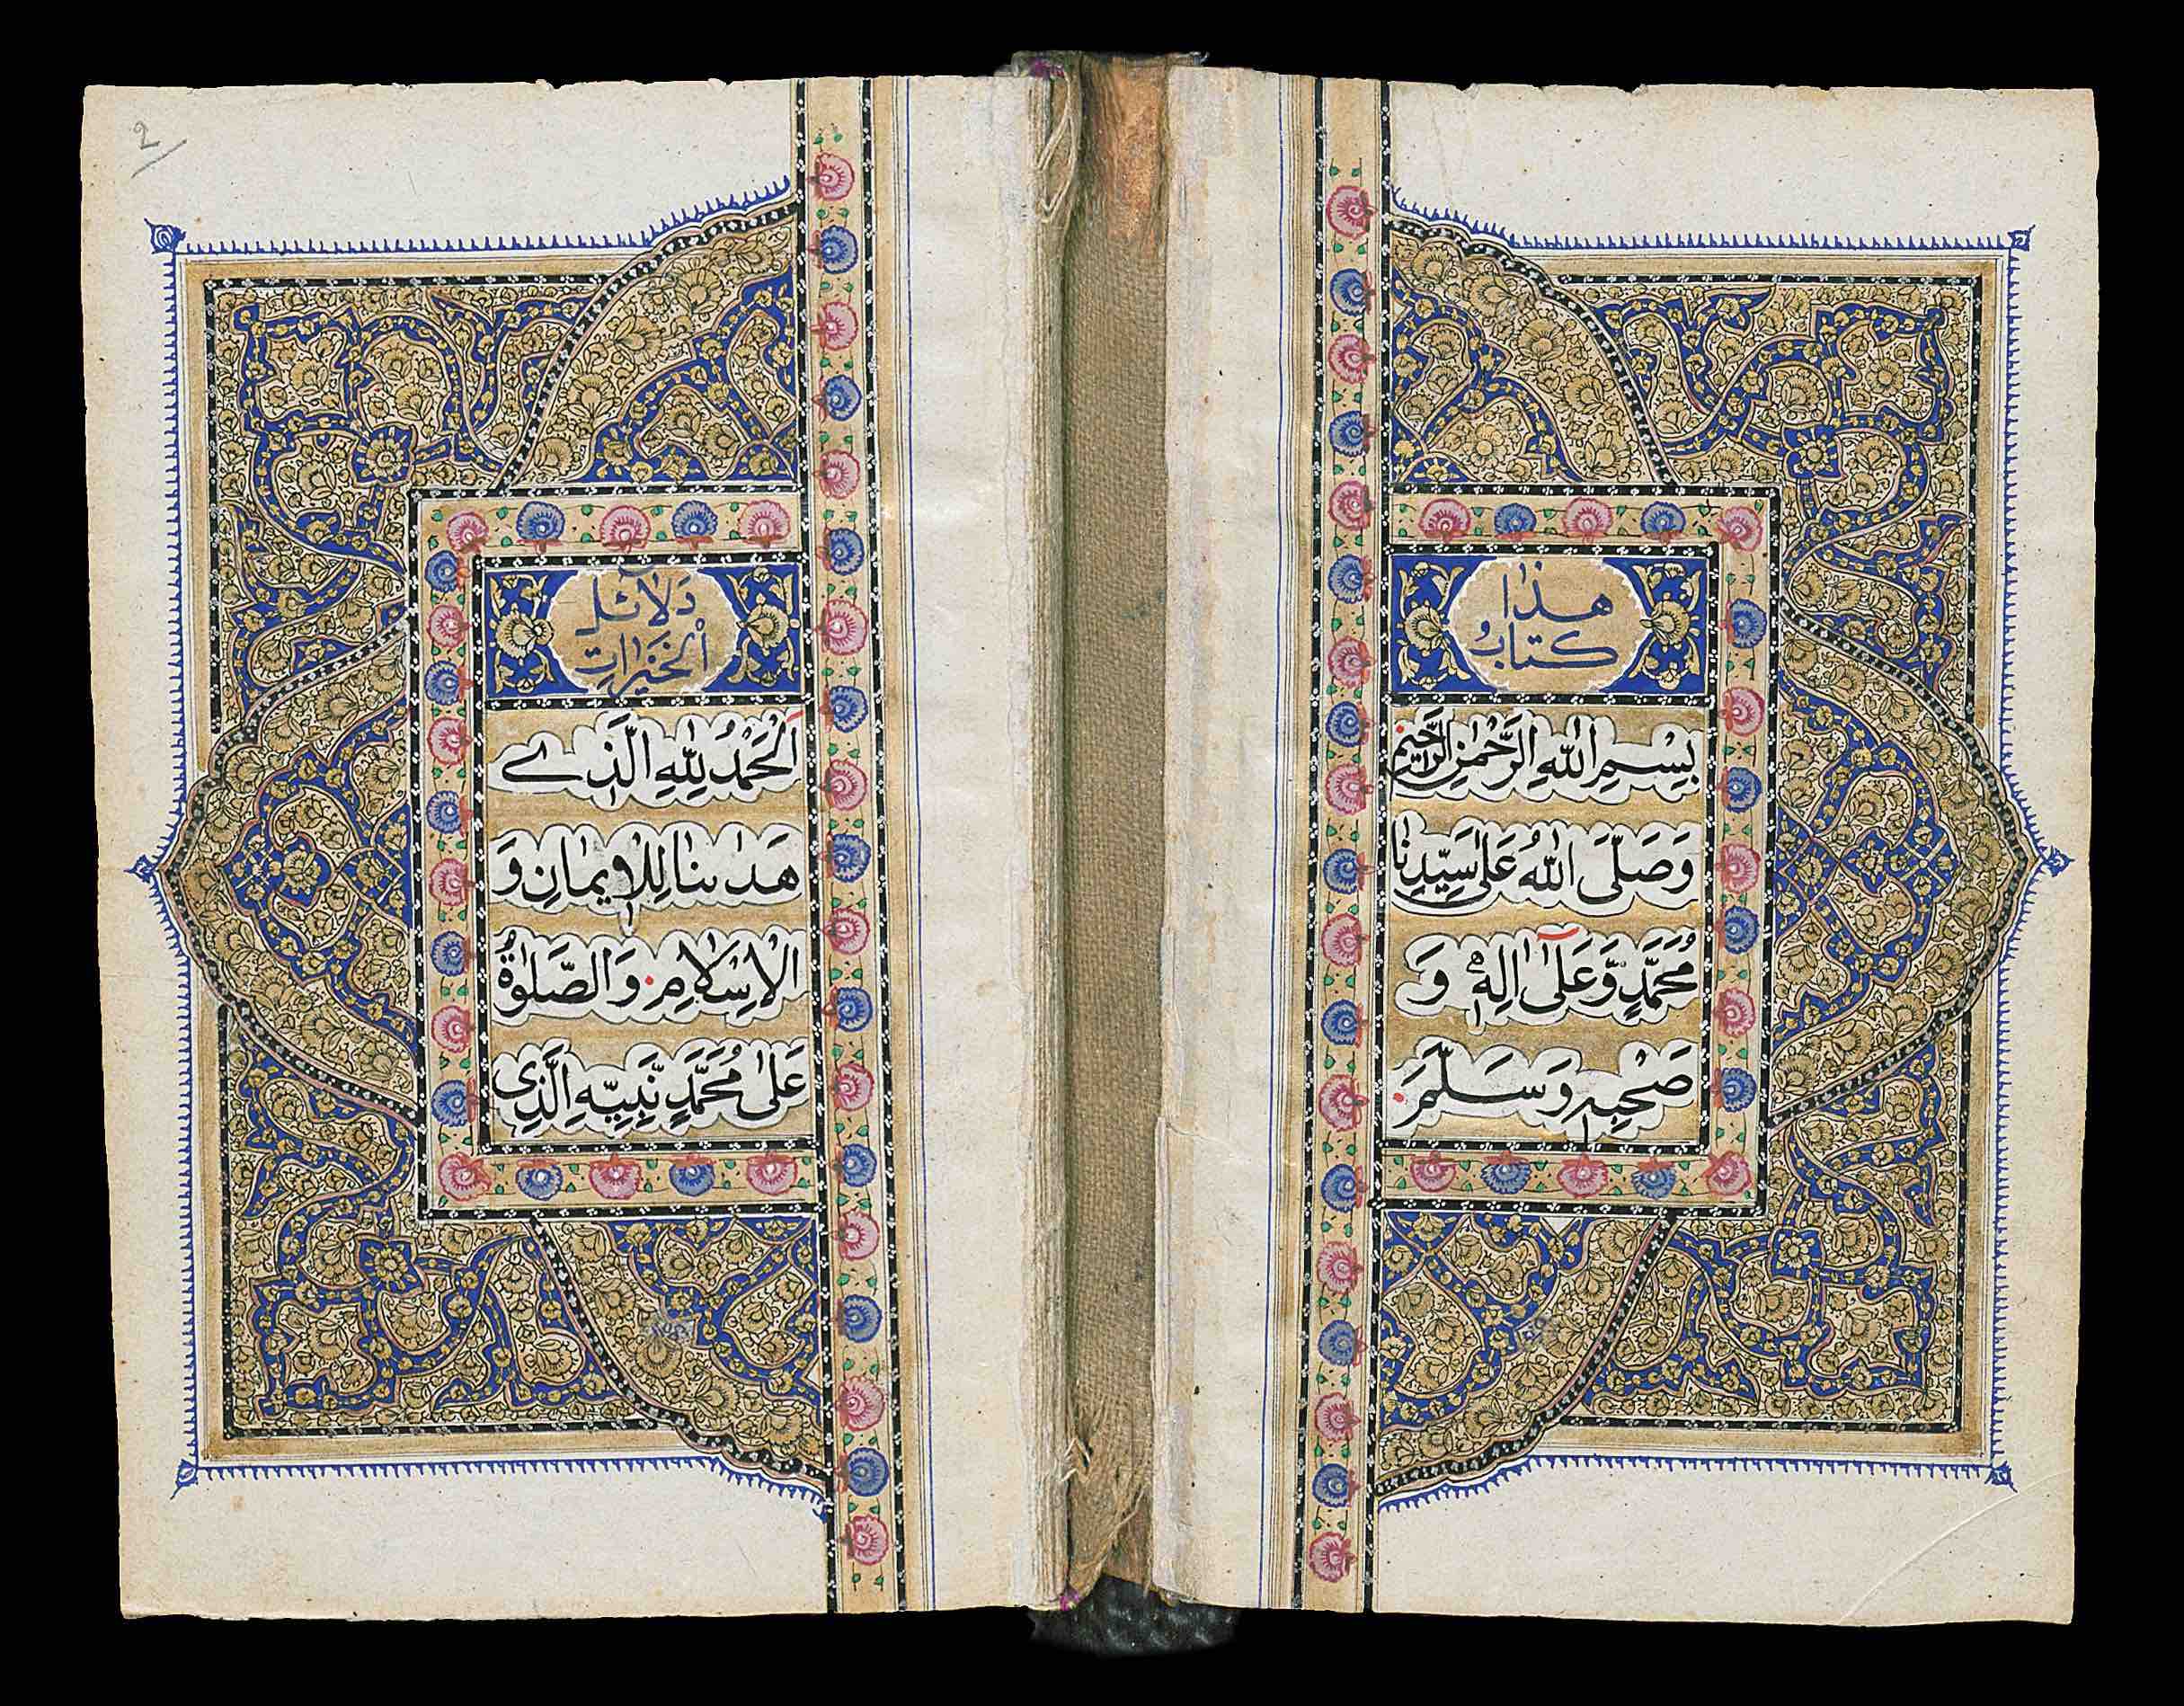 هذا
كتاب
بِسْمِ اللهِ الرَّحْمٰنِ الرَّحِيْمِ
وَصَلَّى اللهُ عَلٰى سَيِّدِنَا
مُحَمَّدٍ وَّعَلٰٓى اٰلِهٖ وَ
صَحْبِهٖ وَسَلَّمَ
دَلَائِل
الْخَيْرَاتِ
اَلْحَمْدُ لِلّٰهِ الَّذِے
هَدٰىنَا لِلْاِيمَانِ وَ
الْاِسْلَامِ وَالصَّلٰوةُ
عَلٰى مُحَمَّدٍ نَّبِيِّهِ الَّذِى
2